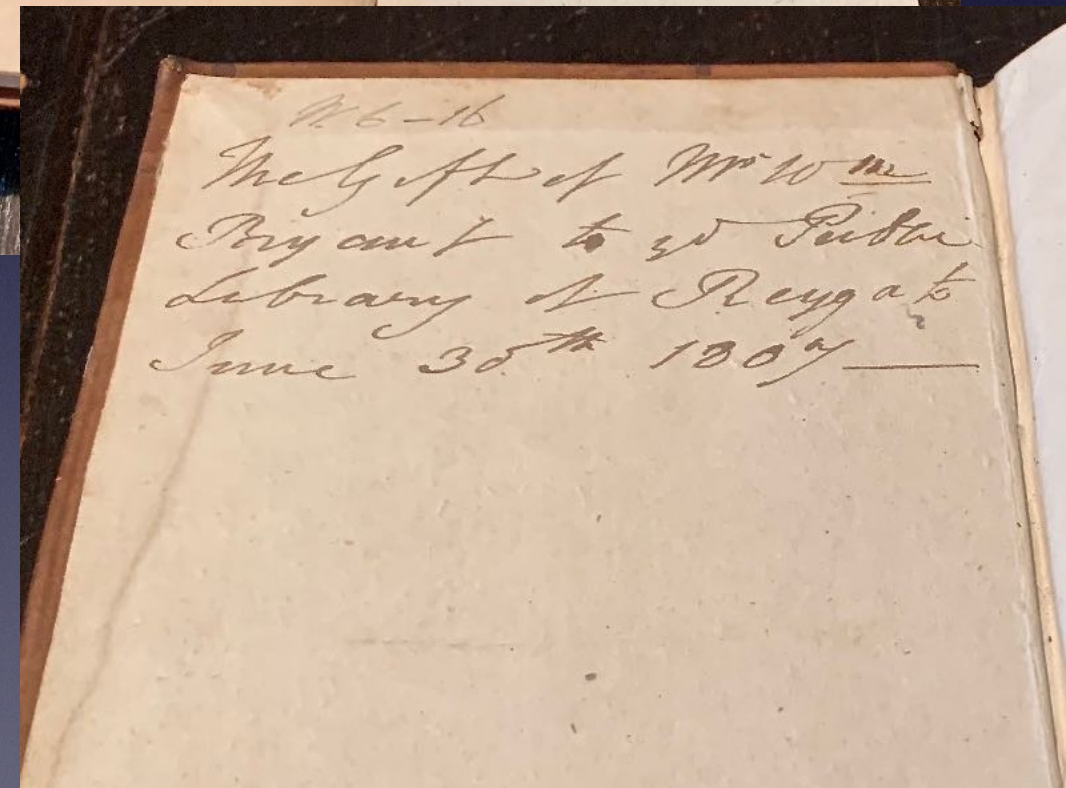 W. 6-16
The Gift of Mr Wm
Bryant to ye Public
Library at Reygate
June 30th 1807